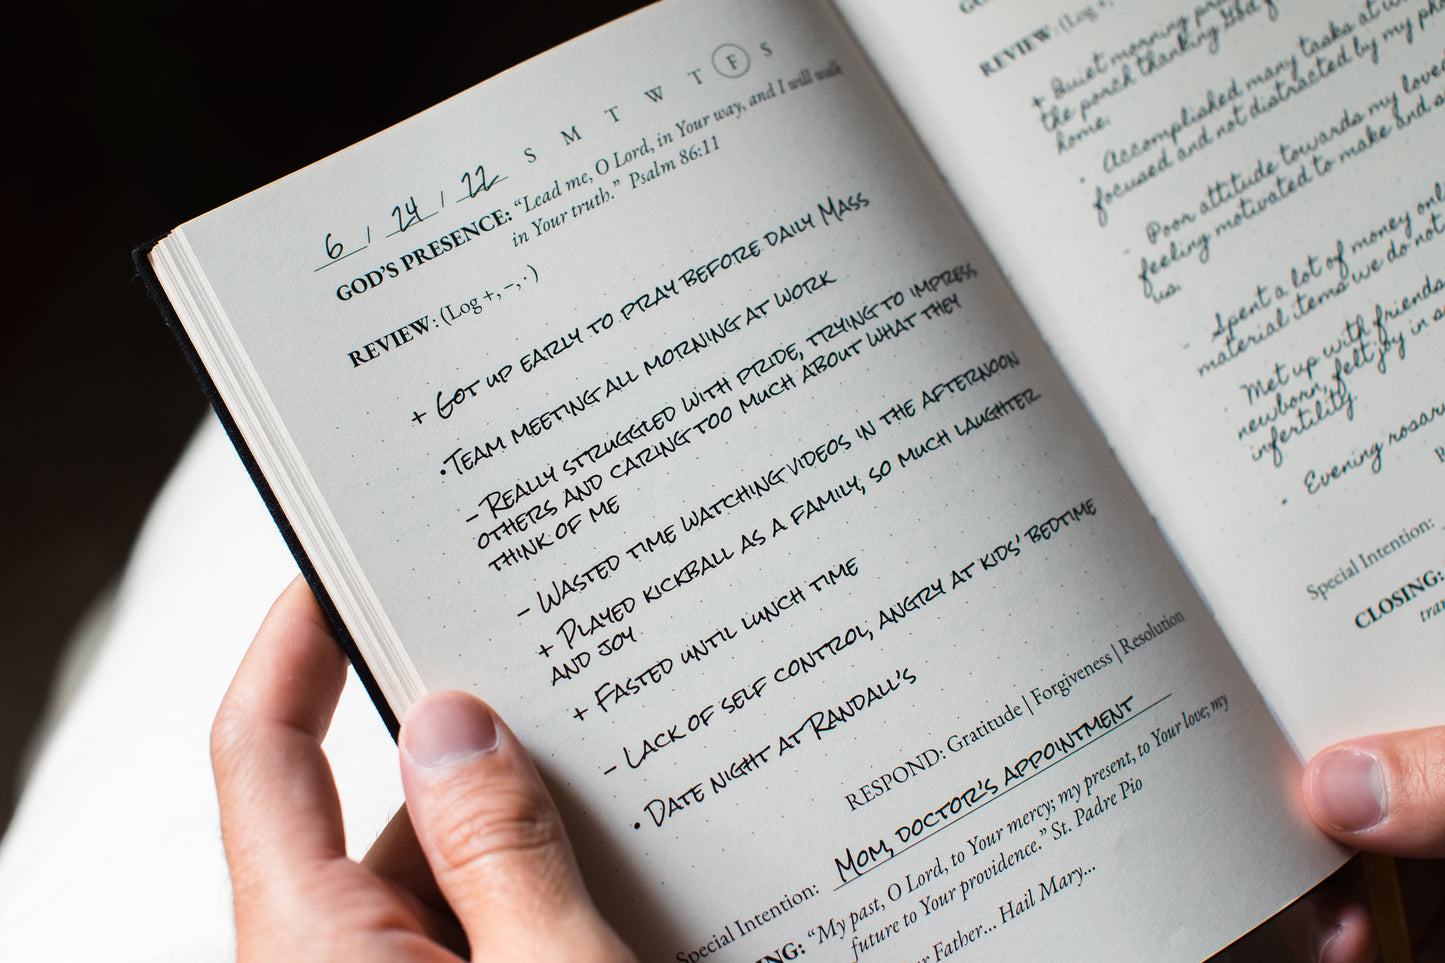 S M T W T F S
6 / 24 / 22
GOD'S PRESENCE: "Lead me, O Lord, in Your way, and I will walk
in Your truth." Psalm 86:11
REVIEW: (Log +, –, ·)
+ GOT UP EARLY TO PRAY BEFORE DAILY MASS
• TEAM MEETING ALL MORNING AT WORK
– REALLY STRUGGLED WITH PRIDE, TRYING TO IMPRESS
OTHERS AND CARING TOO MUCH ABOUT WHAT THEY
THINK OF ME
– WASTED TIME WATCHING VIDEOS IN THE AFTERNOON
+ PLAYED KICKBALL AS A FAMILY, SO MUCH LAUGHTER
AND JOY
+ FASTED UNTIL LUNCH TIME
– LACK OF SELF CONTROL, ANGRY AT KIDS' BEDTIME
• DATE NIGHT AT RANDALL'S
RESPOND: Gratitude | Forgiveness | Resolution
Special Intention: MOM, DOCTOR'S APPOINTMENT
NG: "My past, O Lord, to Your mercy; my present, to Your love; my
future to Your providence." St. Padre Pio
r Father... Hail Mary...
REVIEW: (Log +,
+ Quiet morning
the porch thanking God
home.
• Accomplished many tasks at
focused and not distracted by my
- Poor attitude towards my
feeling motivated to make and
us.
- Spent a lot of money
material items we do not
• Met up with friends
newborn, felt joy in
infertility.
• Evening
Special Intention:
CLOSING: